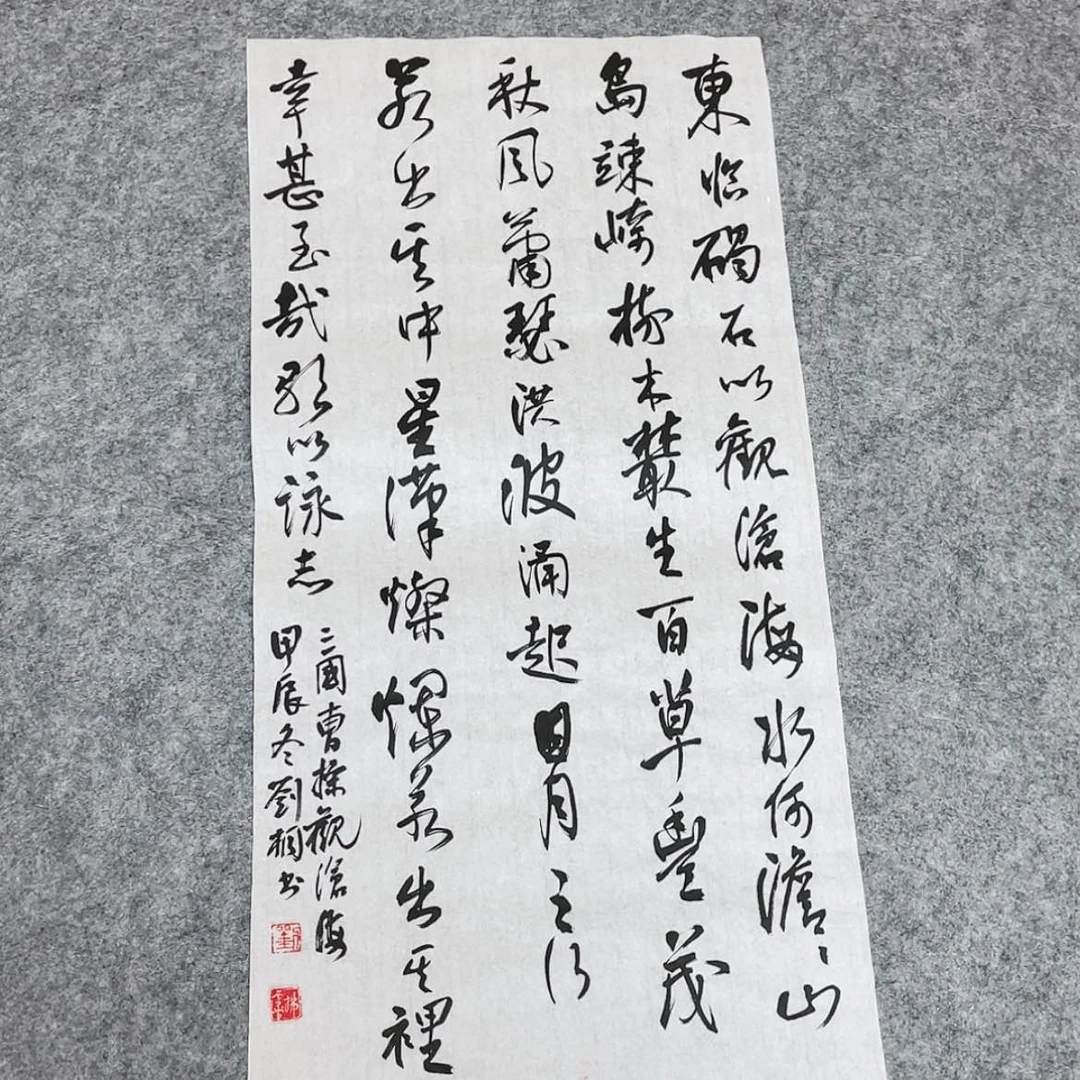 東臨碣石以觀滄海水何澹〻山
島竦峙樹木叢生百草豐茂
秋風蕭瑟洪波涌起日月之行
若出其中星漢燦爛若出其裡
幸甚至哉歌以詠志
三國曹操觀滄海
甲辰冬劉桐書